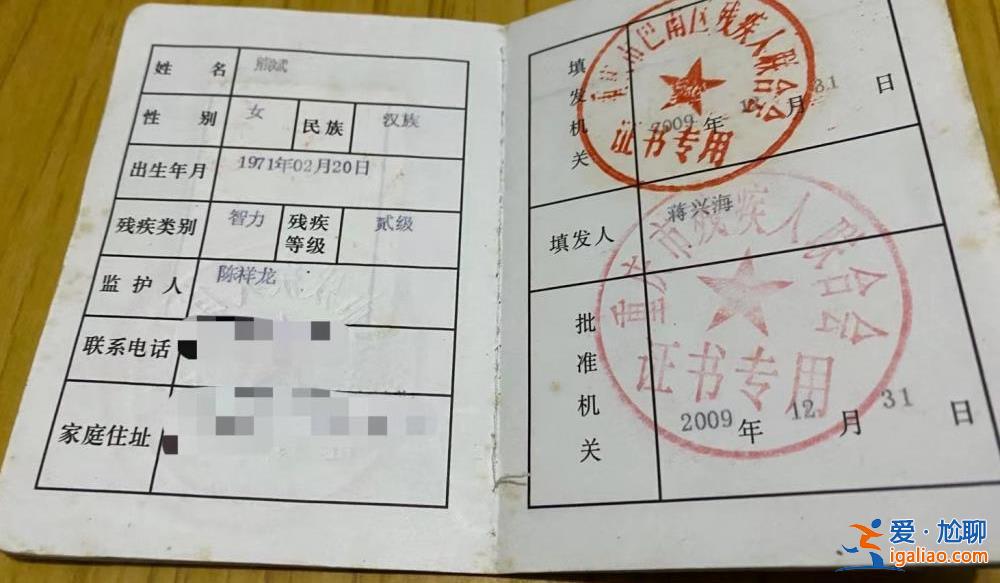 姓 名 熊斌
性 别 女 民族 汉族
出生年月 1971年02月20日
残疾类别 智力 残疾等级 贰级
监护人 陈祥龙
联系电话
家庭住址
填发机关
重庆市巴南区残疾人联合会
证书专用
2009年12月31日
填发人 蒋兴海
批准机关
重庆市残疾人联合会
证书专用
2009年12月31日
爱·尬聊
igaliao.com